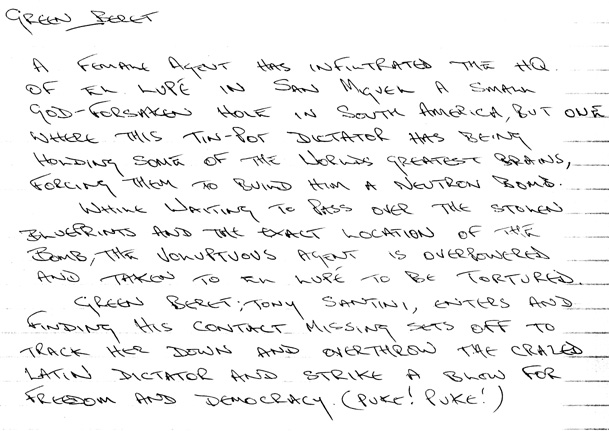 GREEN BERET
A FEMALE AGENT HAS INFILTRATED THE HQ
OF EL LUPÉ IN SAN MIGUEL A SMALL
GOD-FORSAKEN HOLE IN SOUTH AMERICA, BUT ONE
WHERE THIS TIN-POT DICTATOR HAS BEING
HOLDING SOME OF THE WORLDS GREATEST BRAINS,
FORCING THEM TO BUILD HIM A NEUTRON BOMB.
WHILE WAITING TO PASS OVER THE STOLEN
BLUEPRINTS AND THE EXACT LOCATION OF THE
BOMB, THE VOLUPTUOUS AGENT IS OVERPOWERED
AND TAKEN TO EL LUPÉ TO BE TORTURED.
GREEN BERET; TONY SANTINI, ENTERS AND
FINDING HIS CONTACT MISSING SETS OFF TO
TRACK HER DOWN AND OVERTHROW THE CRAZED
LATIN DICTATOR AND STRIKE A BLOW FOR
FREEDOM AND DEMOCRACY. (PUKE! PUKE!)